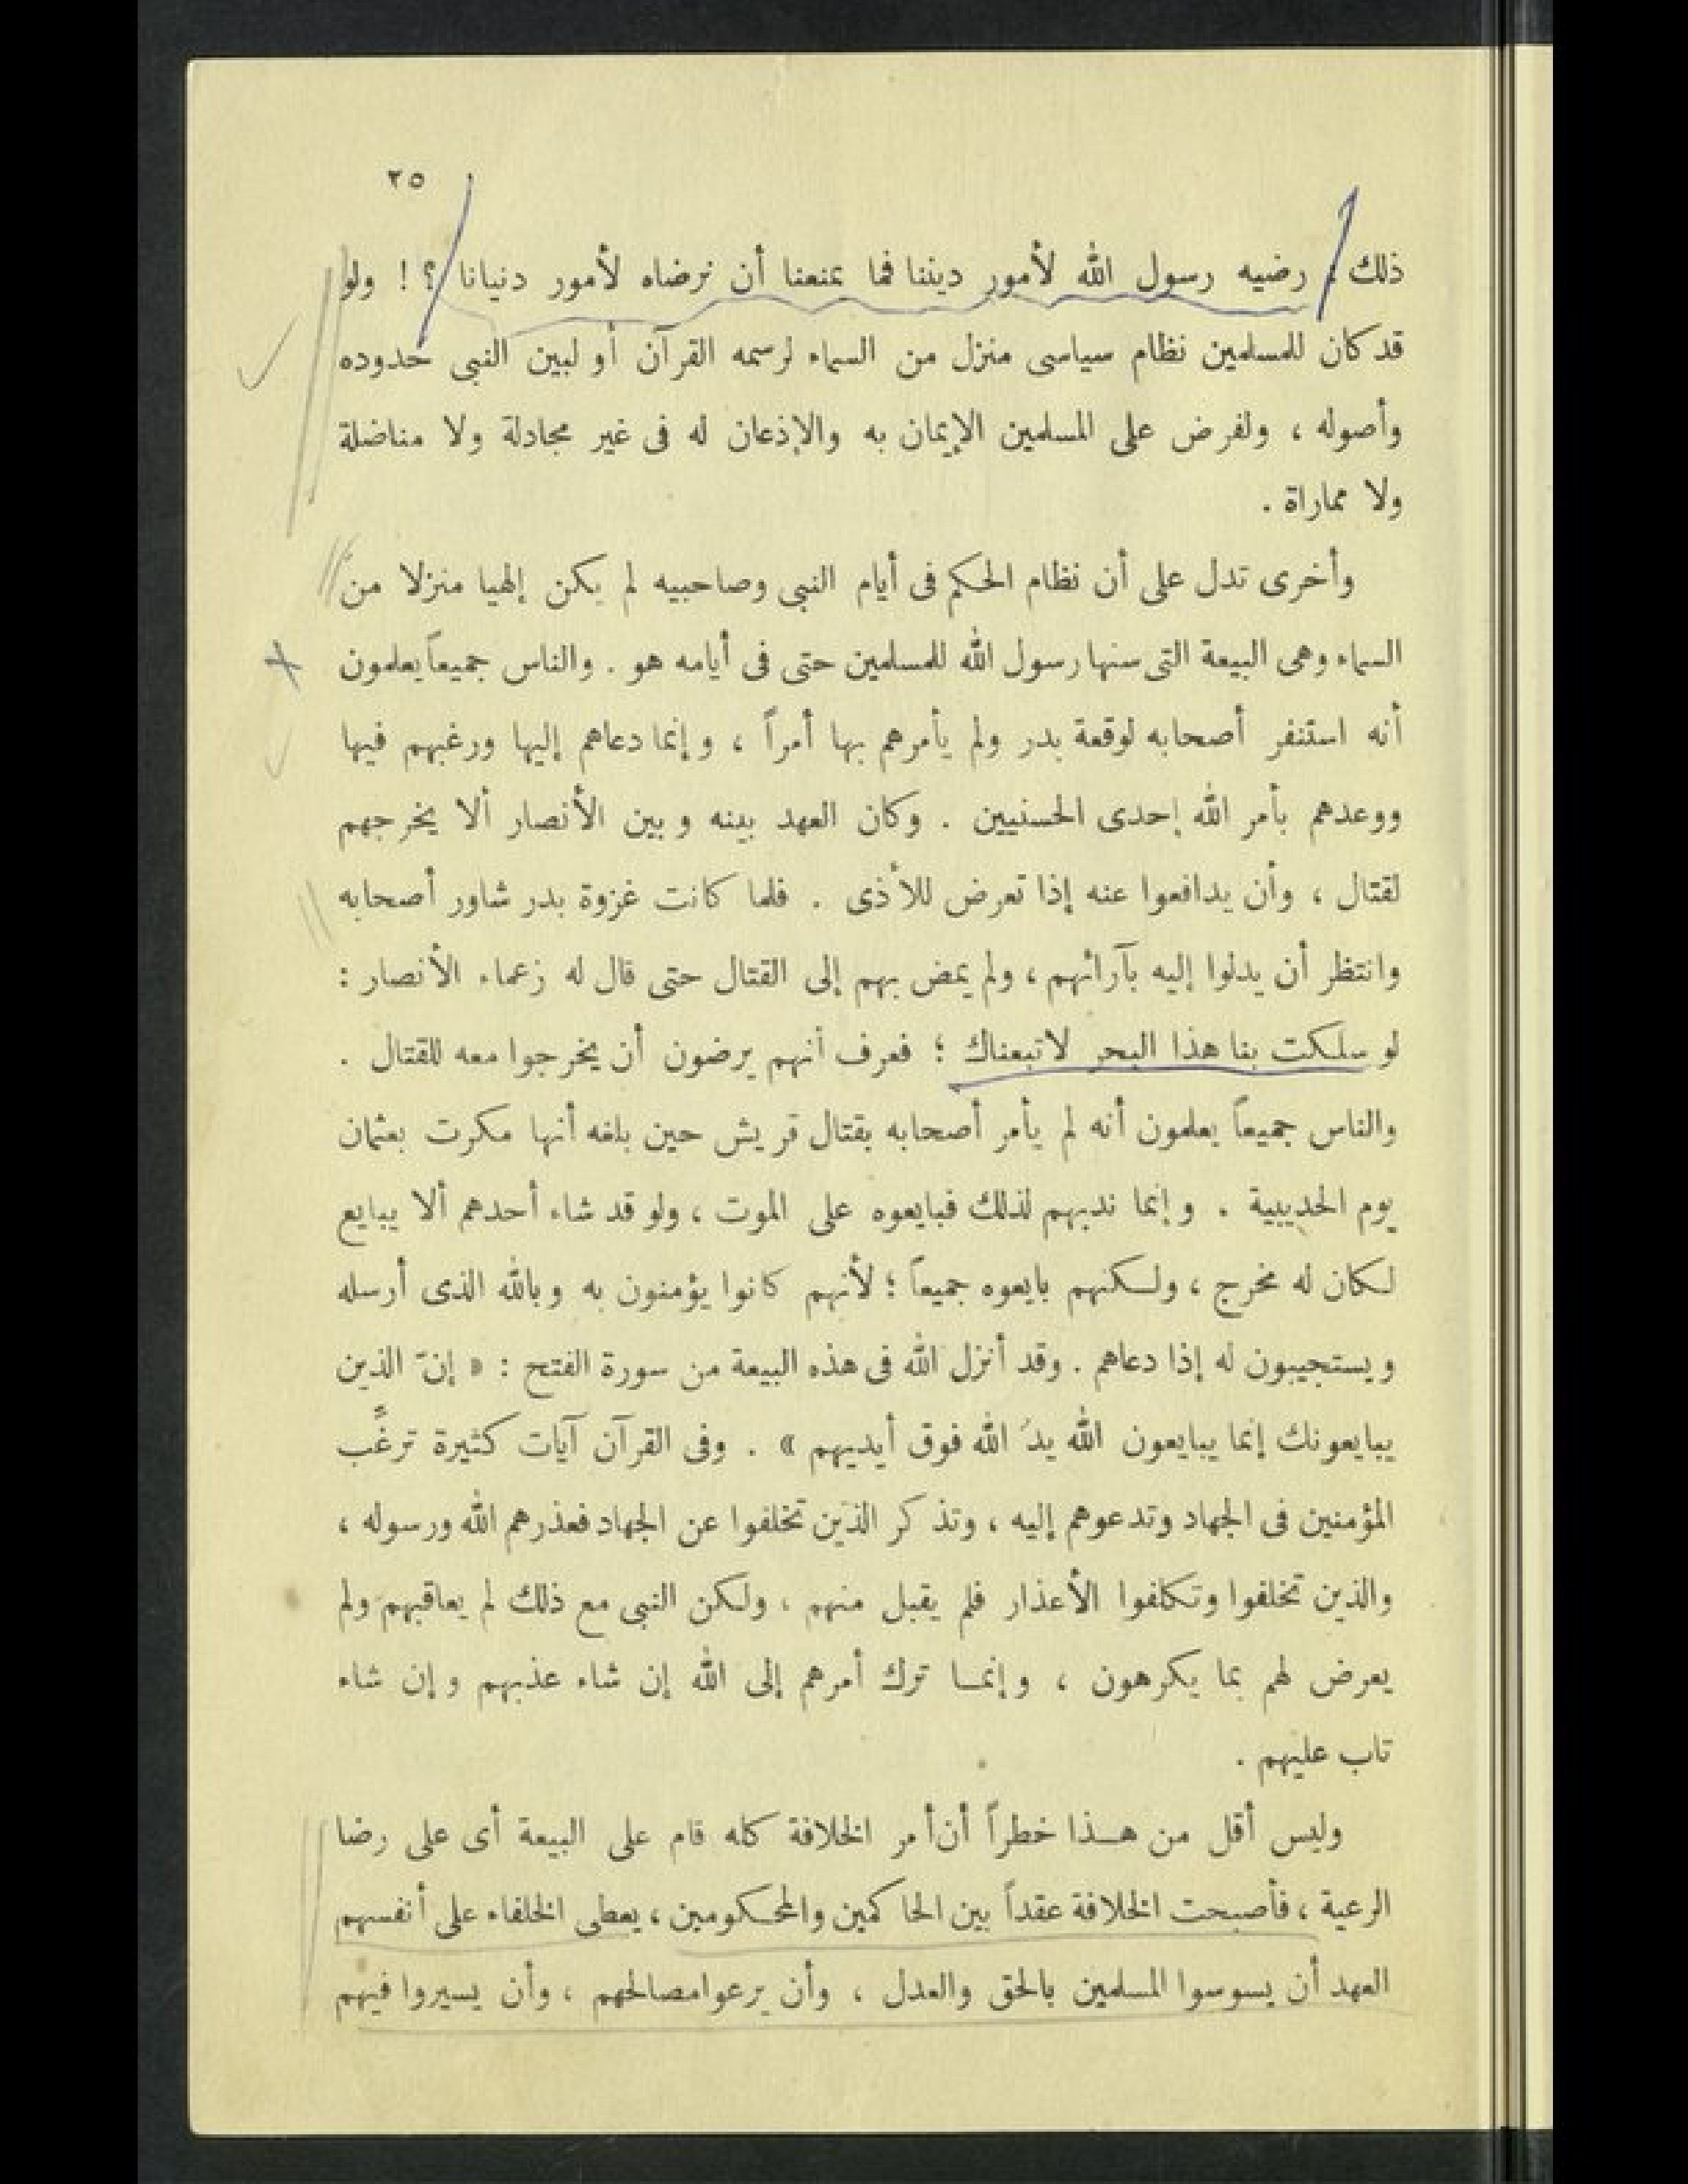 ٢٥
ذلك : رضيه رسول الله لأمور ديننا فما يمنعنا أن نرضاه لأمور دنيانا ؟ ! ولو
قد كان للمسلمين نظام سياسى منزل من السماء لرسمه القرآن أو لبين النبى حدوده
وأصوله ، ولفرض على المسلمين الإيمان به والإذعان له فى غير مجادلة ولا مناضلة
ولا مماراة .
وأخرى تدل على أن نظام الحكم فى أيام النبى وصاحبيه لم يكن إلهيا منزلا من
السماء وهى البيعة التى سنها رسول الله للمسلمين حتى فى أيامه هو . والناس جميعاً يعلمون
أنه استنفر أصحابه لوقعة بدر ولم يأمرهم بها أمراً ، وإنما دعاهم إليها ورغبهم فيها
ووعدهم بأمر الله إحدى الحسنيين . وكان العهد بينه وبين الأنصار ألا يخرجهم
لقتال ، وأن يدافعوا عنه إذا تعرض للأذى . فلما كانت غزوة بدر شاور أصحابه
وانتظر أن يدلوا إليه بآرائهم ، ولم يمض بهم إلى القتال حتى قال له زعماء الأنصار :
لو سلكت بنا هذا البحر لاتبعناك ؛ فعرف أنهم يرضون أن يخرجوا معه للقتال .
والناس جميعاً يعلمون أنه لم يأمر أصحابه بقتال قريش حين بلغه أنها مكرت بعثمان
يوم الحديبية . وإنما ندبهم لذلك فبايعوه على الموت ، ولو قد شاء أحدهم ألا يبايع
لكان له مخرج ، ولكنهم بايعوه جميعاً ؛ لأنهم كانوا يؤمنون به وبالله الذى أرسله
ويستجيبون له إذا دعاهم . وقد أنزل الله فى هذه البيعة من سورة الفتح : « إنّ الذين
يبايعونك إنما يبايعون الله يدُ الله فوق أيديهم » . وفى القرآن آيات كثيرة ترغِّب
المؤمنين فى الجهاد وتدعوهم إليه ، وتذكر الذين تخلفوا عن الجهاد فعذرهم الله ورسوله ،
والذين تخلفوا وتكلفوا الأعذار فلم يقبل منهم ، ولكن النبى مع ذلك لم يعاقبهم ولم
يعرض لهم بما يكرهون ، وإنما ترك أمرهم إلى الله إن شاء عذبهم وإن شاء
تاب عليهم .
وليس أقل من هذا خطراً أن أمر الخلافة كله قام على البيعة أى على رضا
الرعية ، فأصبحت الخلافة عقداً بين الحاكمين والمحكومين ، يعطى الخلفاء على أنفسهم
العهد أن يسوسوا المسلمين بالحق والعدل ، وأن يرعوا مصالحهم ، وأن يسيروا فيهم